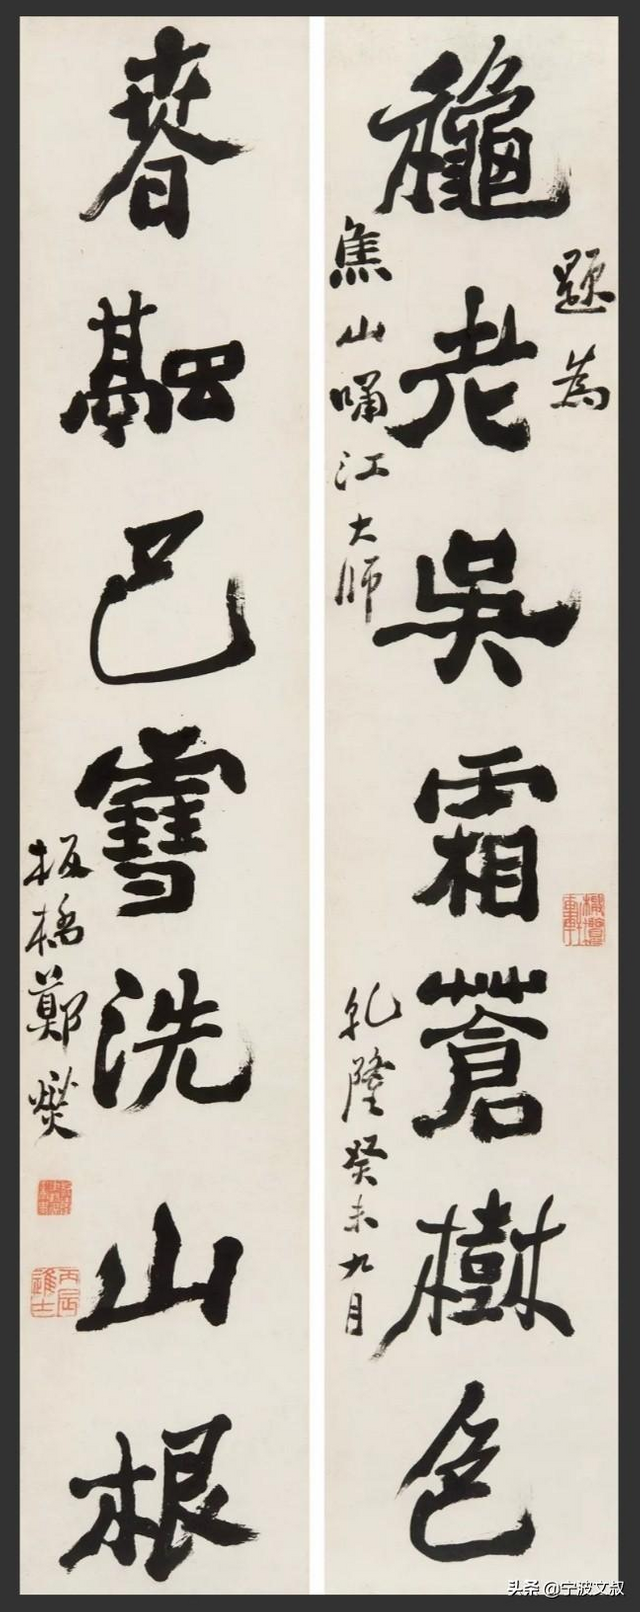 題為
穐老吳霜蒼樹色
焦山嘯江大師
乾隆癸未九月
春融巴雪洗山根
板橋鄭燮
丙辰進士
头条 @宁波文叔